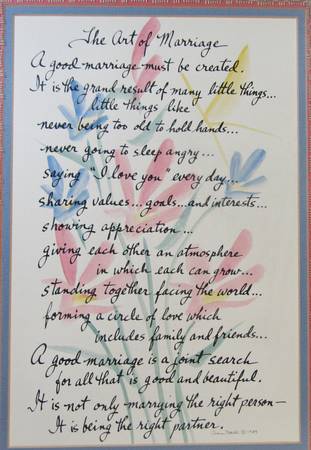 The Art of Marriage
A good marriage must be created.
It is the grand result of many little things...
little things like
never being too old to hold hands...
never going to sleep angry...
saying "I love you" every day...
sharing values... goals... and interests...
showing appreciation...
giving each other an atmosphere
in which each can grow...
standing together facing the world...
forming a circle of love which
includes family and friends...
A good marriage is a joint search
for all that is good and beautiful.
It is not only marrying the right person—
It is being the right partner.